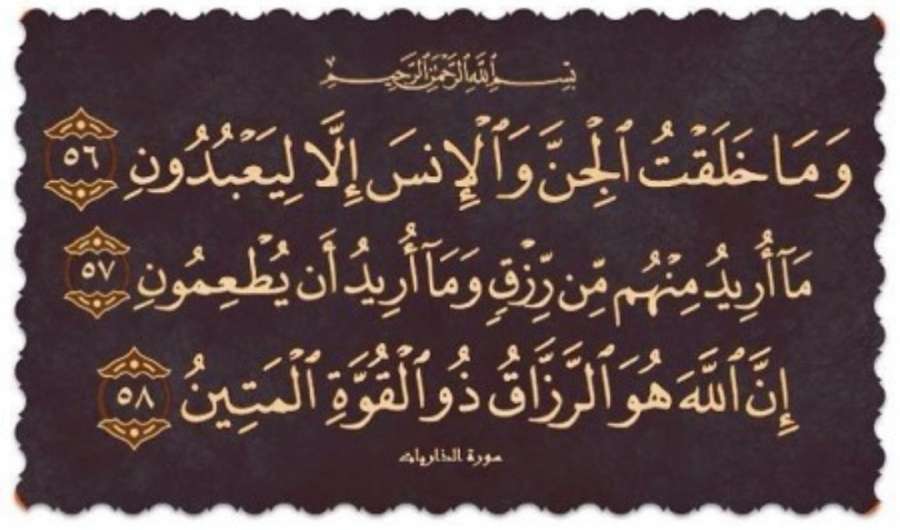 بِسْمِ ٱللَّهِ ٱلرَّحْمَٰنِ ٱلرَّحِيمِ
وَمَا خَلَقْتُ ٱلْجِنَّ وَٱلْإِنسَ إِلَّا لِيَعْبُدُونِ ٥٦
مَآ أُرِيدُ مِنْهُم مِّن رِّزْقٍ وَمَآ أُرِيدُ أَن يُطْعِمُونِ ٥٧
إِنَّ ٱللَّهَ هُوَ ٱلرَّزَّاقُ ذُو ٱلْقُوَّةِ ٱلْمَتِينُ ٥٨
سورة الذاريات